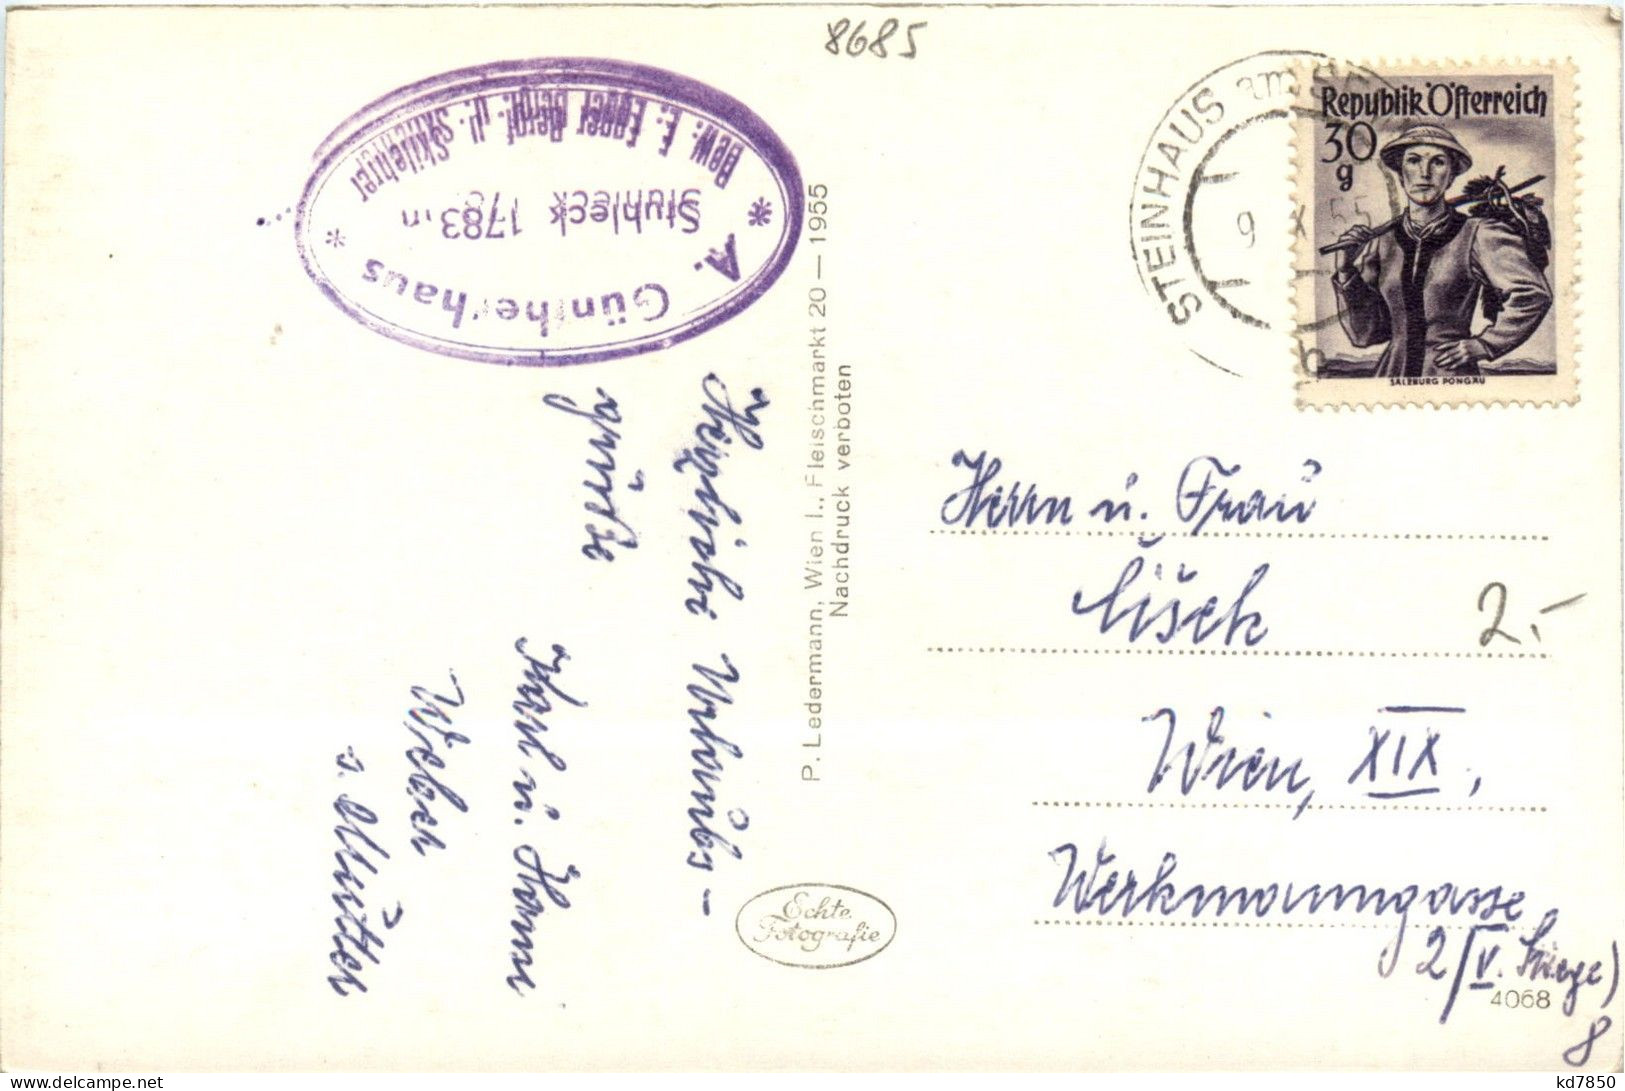 8685
A. Güntherhaus
Stuhleck 1783 m
Bew. E. Egger Bergf. u. Skilehrer
STEINHAUS am
9. X. 55
b
Republik Österreich
30
g
SALZBURG PONGAU
Herzliche Urlaubs-
grüße
Karl u. Hanni
Weber
u. Mutter
P. Ledermann, Wien I., Fleischmarkt 20 — 1955
Nachdruck verboten
Echte
Fotografie
Herrn u. Frau
2.-
Wien, XIX,
Werkmanngasse
2/V. Stiege)
8
4068
kd7850